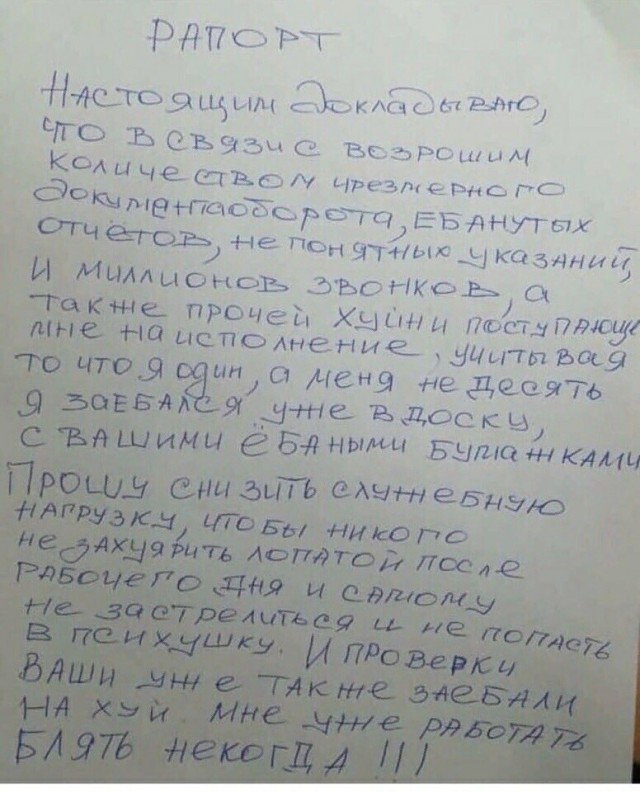 РАПОРТ
Настоящим докладываю,
что в связи с возрошим
количеством чрезмерного
документаоборота, ебанутых
отчётов, не понятных указаний,
и миллионов звонков, а
также прочей хуйни поступающе
мне на исполнение, учитывая
то что я один, а меня не десять
я заебался уже в доску,
с вашими ёбаными бумажками
Прошу снизить служебную
нагрузку, чтобы никого
не захуярить лопатой после
рабочего дня и самому
не застрелиться и не попасть
в психушку. И проверки
ваши уже также заебали
на хуй мне уже работать
блять некогда !!!